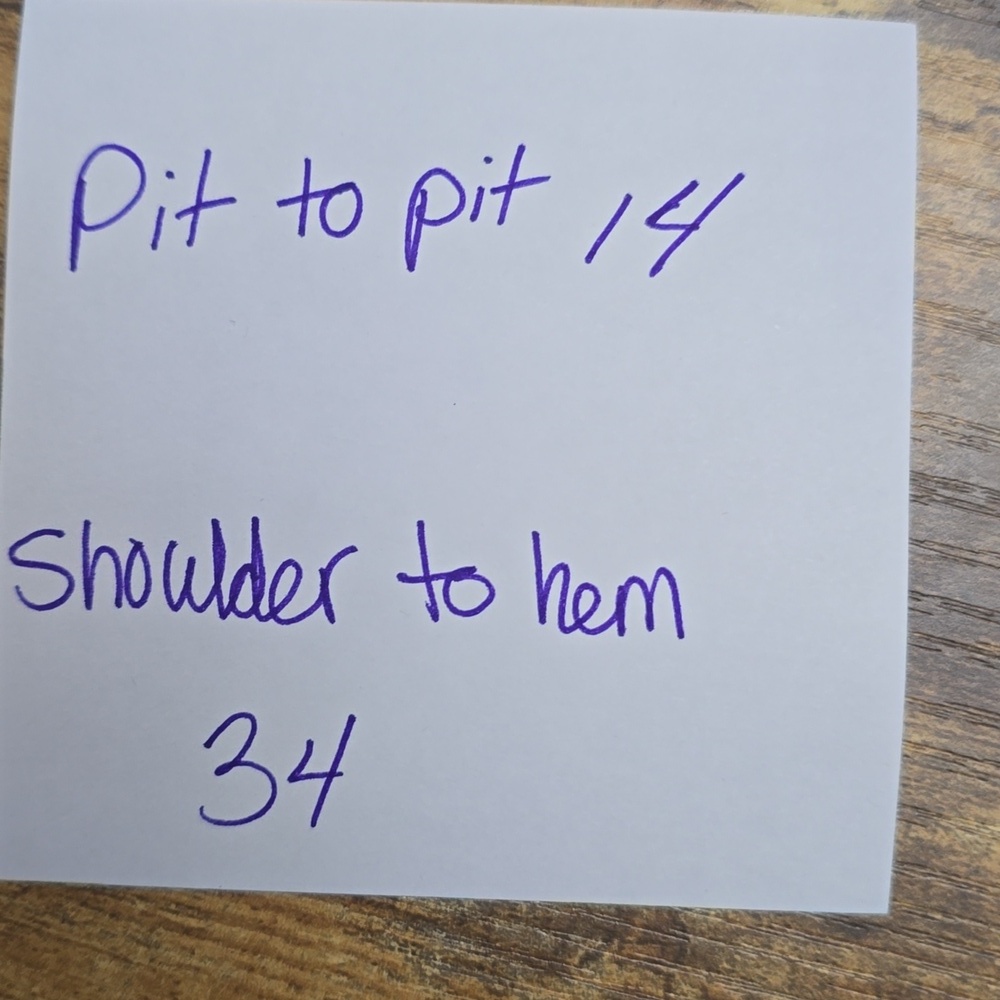 Pit to pit 14
Shoulder to hem
34